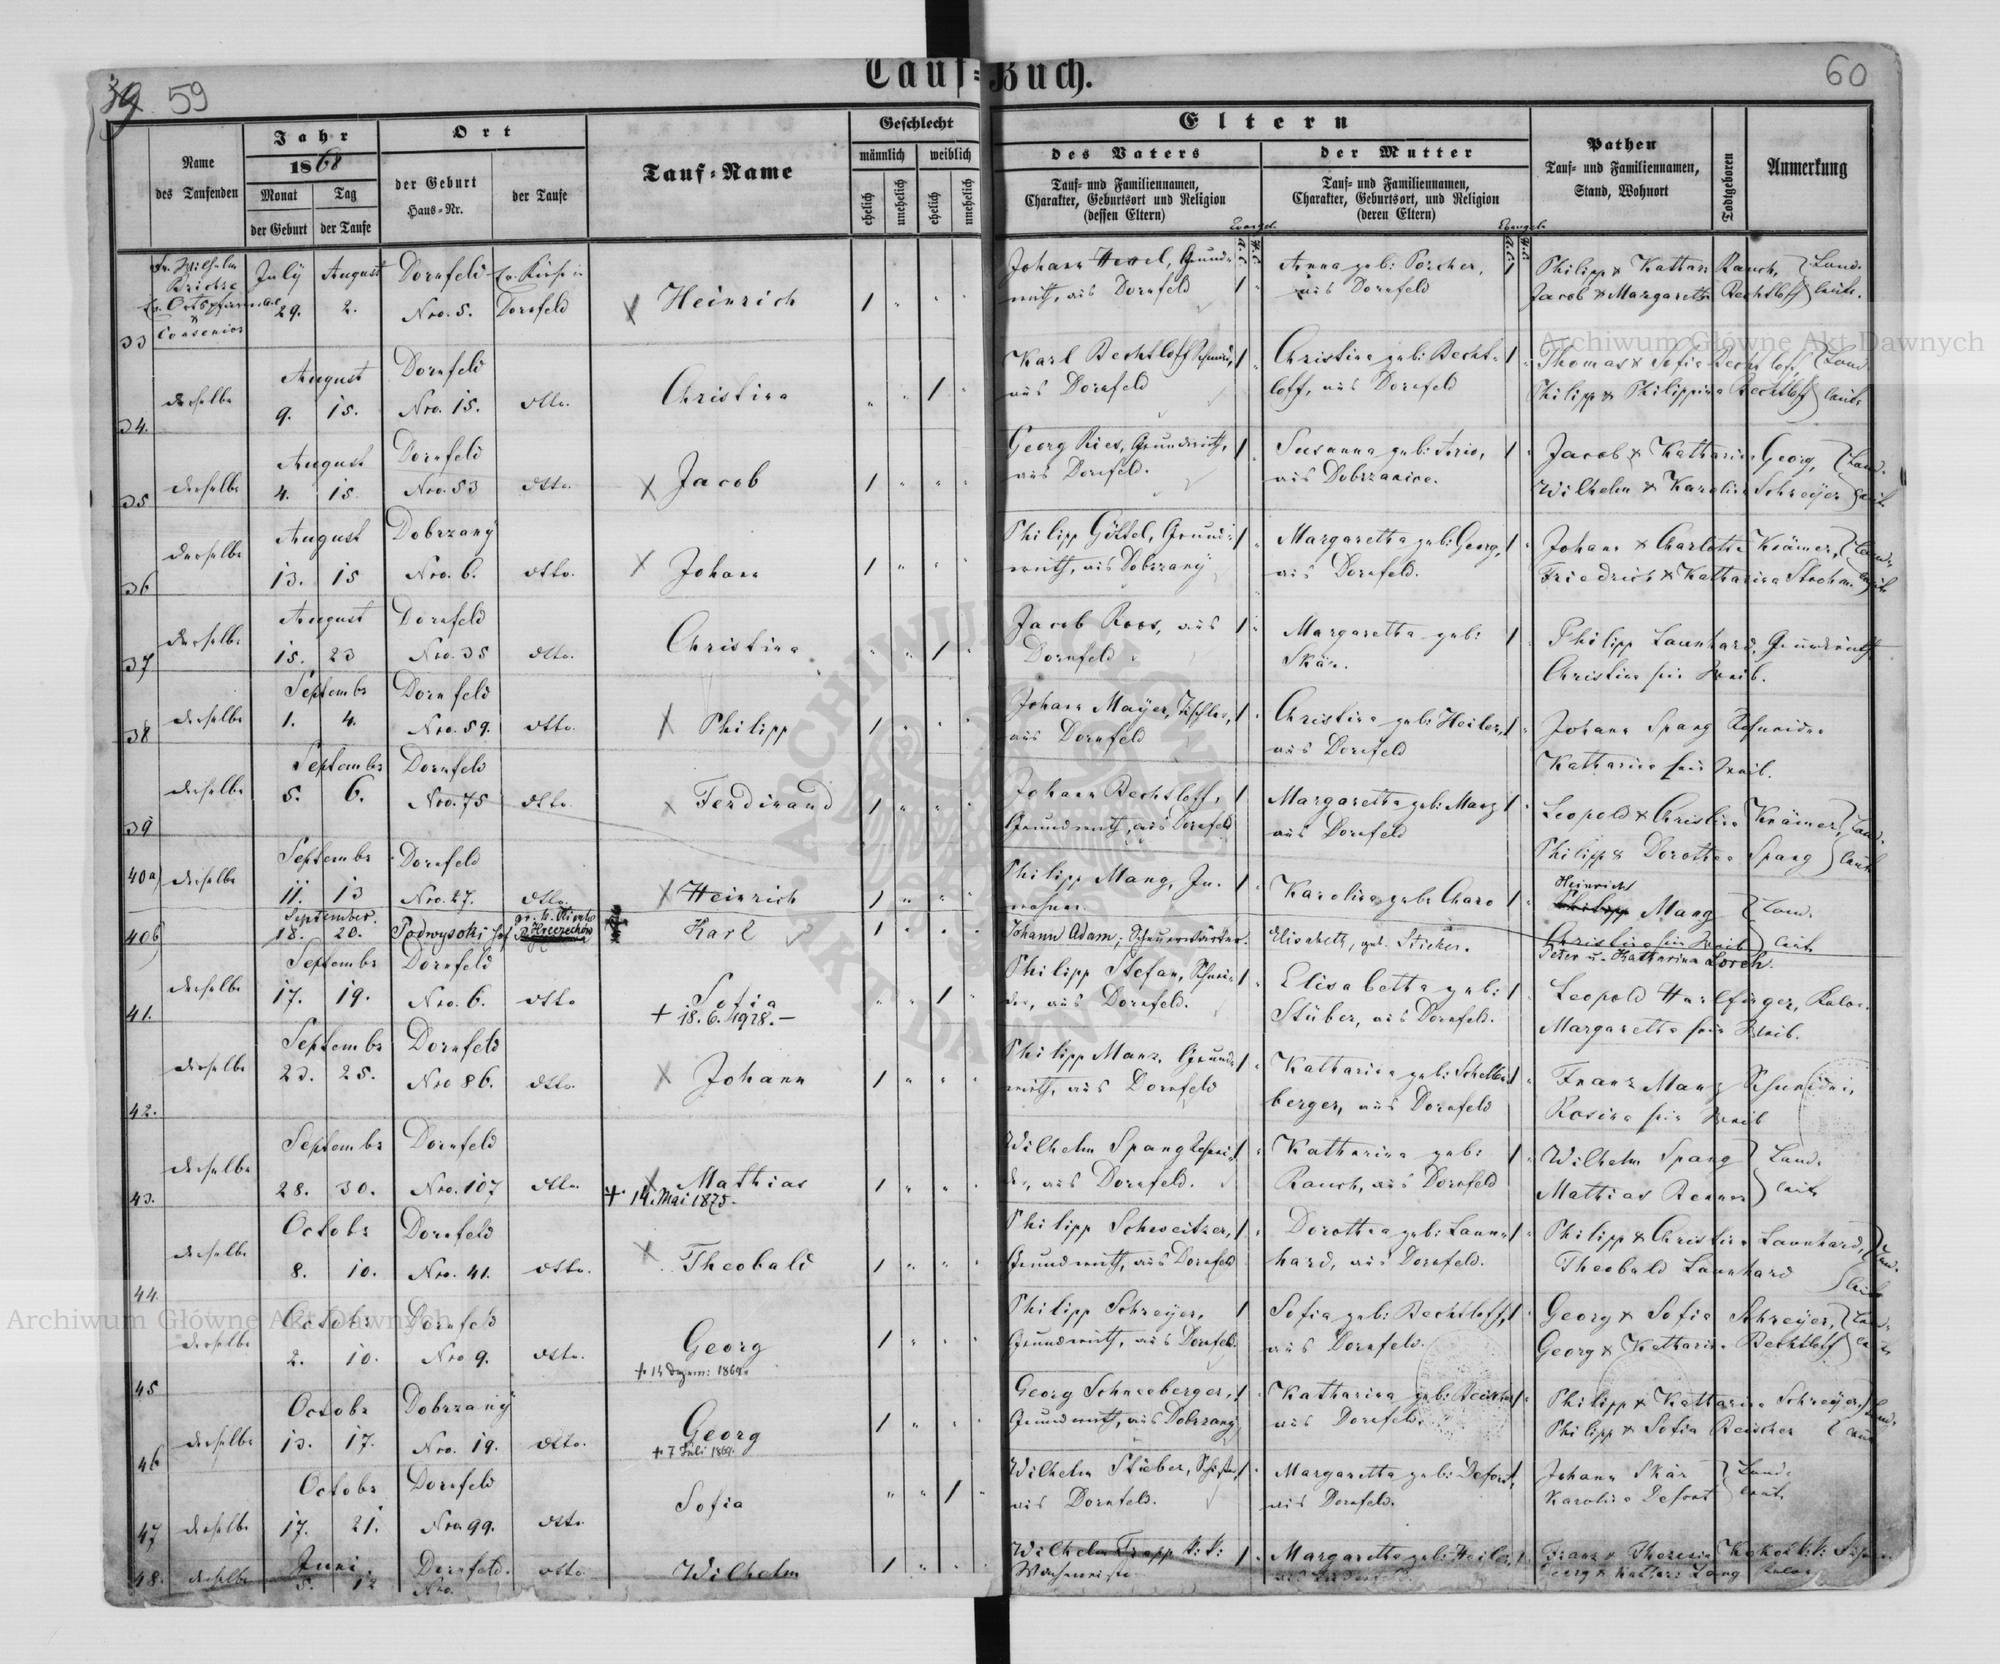 39 59
Tauf-Buch.
60
Name
des Taufenden
Jahr
1868
Monat
der Geburt
Tag
der Taufe
Ort
der Geburt
Haus-Nr.
der Taufe
Tauf-Name
Geschlecht
männlich
weiblich
ehelich
unehelich
ehelich
unehelich
Eltern
des Vaters
Tauf- und Familiennamen,
Charakter, Geburtsort und Religion
(dessen Eltern)
der Mutter
Tauf- und Familiennamen,
Charakter, Geburtsort, und Religion
(deren Eltern)
Pathen
Tauf- und Familiennamen,
Stand, Wohnort
Todtgeboren
Anmerkung
33 July August Dornfeld Heinrich Johann
29. 2. Nro. 5. Dornfeld aus Dornfeld Anna geb: Porcher, aus Dornfeld
Philipp & Kathar. Rauch,
Jacob & Margaretha Bechtloff
34. derselbe August Dornfeld
9. 15. Nro. 15. dtto. Christina
Karl Bechtloff
aus Dornfeld
Christina geb: Becht-
loff, aus Dornfeld
Thomas & Sofia Bechtloff,
Philipp & Philippina Bechtloff
35 derselbe August Dornfeld
4. 15. Nro. 53 dtto. Jacob
Georg Ries, Grundwirth,
aus Dornfeld.
Susanna geb:
aus Dobrzanica.
Jacob & Katharina Georg,
Wilhelm & Karolina Schreyer
36 derselbe August Dobrzany
13. 15 Nro. 6. dtto. Johann
Philipp Göttel, Grund-
wirth, aus Dobrzany
Margaretha geb: Georg,
aus Dornfeld.
Johann & Charlotte Krämer,
Friedrich & Katharina Strohm
37 derselbe August Dornfeld
15. 23 Nro. 35 dtto. Christina
Jacob Roos, aus
Dornfeld
Margaretha geb:
Skär.
Philipp Launhard, Grundwirth
Christina sein Weib.
38 derselbe Septembr Dornfeld
1. 4. Nro. 59. dtto. Philipp
Johann Mayer, Tischler,
aus Dornfeld
Christina geb: Heiler,
aus Dornfeld
Johann Spang Schneider
Katharina sein Weib.
39 derselbe Septembr Dornfeld
5. 6. Nro. 75 dtto. Ferdinand
Johann Bechtloff,
Grundwirth, aus Dornfeld
Margaretha geb: Manz
aus Dornfeld
Leopold & Christina Krämer,
Philipp & Dorothea Spang
40a) derselbe Septembr Dornfeld
11. 13 Nro. 27. dtto. Heinrich
Philipp Mang, In-
wohner
Karolina geb:
Heinrich
Philipp Mang
Christina sein Weib
40b) September.
18. 20. Podwysoki Karl
Johann Adam,
Elisabeth, geb. Sticher.
Peter u. Katharina Lorch.
41. derselbe Septembr Dornfeld
17. 19. Nro. 6. dtto Sofia
+ 18. 6. 1928. —
Philipp Stefan, Schnei-
der, aus Dornfeld.
Elisabetha geb:
Stüber, aus Dornfeld.
Leopold
Margaretha sein Weib.
42. derselbe Septembr Dornfeld
23. 25. Nro 86. dtto. Johann
Philipp Manz, Grund-
wirth, aus Dornfeld
Katharina geb: Schellen-
berger, aus Dornfeld
Franz Manz Schneider,
Rosina sein Weib
43. derselbe Septembr Dornfeld
28. 30. Nro. 107 dtto. Mathias
+ 14. Mai 1875.
Wilhelm Spang Schnei-
der, aus Dornfeld.
Katharina geb:
Rauch, aus Dornfeld
Wilhelm Spang
Mathias Renner
44. derselbe Octobr Dornfeld
8. 10. Nro. 41. dtto. Theobald
Philipp Schweitzer,
Grundwirth, aus Dornfeld
Dorothea geb: Laun-
hard, aus Dornfeld.
Philipp & Christina Launhard,
Theobald Launhard
45 derselbe Octobr Dornfeld
2. 10. Nro 9. dtto. Georg
+ 14 Dezem: 1869.
Philipp Schreyer,
Grundwirth, aus Dornfeld.
Sofia geb: Bechtloff,
aus Dornfeld.
Georg & Sofia Schreyer,
Georg & Katharina Bechtloff
46 derselbe Octobr Dobrzany
13. 17. Nro. 19. dtto. Georg
+ 7 Juli 1869.
Georg Schneeberger,
Grundwirth, aus Dobrzany
Katharina geb: Reischer
aus Dornfeld.
Philipp & Katharina Schreyer,
Philipp & Sofia Reischer
47 derselbe Octobr Dornfeld
17. 21. Nro. 99. dtto. Sofia
Wilhelm Stüber,
aus Dornfeld.
Margaretha geb: Defort,
aus Dornfeld.
Johann Skär
Karolina Defort
48. derselbe Juni Dornfeld
5. 12 Nro. dtto. Wilhelm
Wilhelm Trapp k: k:
Margaretha geb: Heiler,
Franz & Theresia
Archiwum Główne Akt Dawnych
Archiwum Główne Akt Dawnych